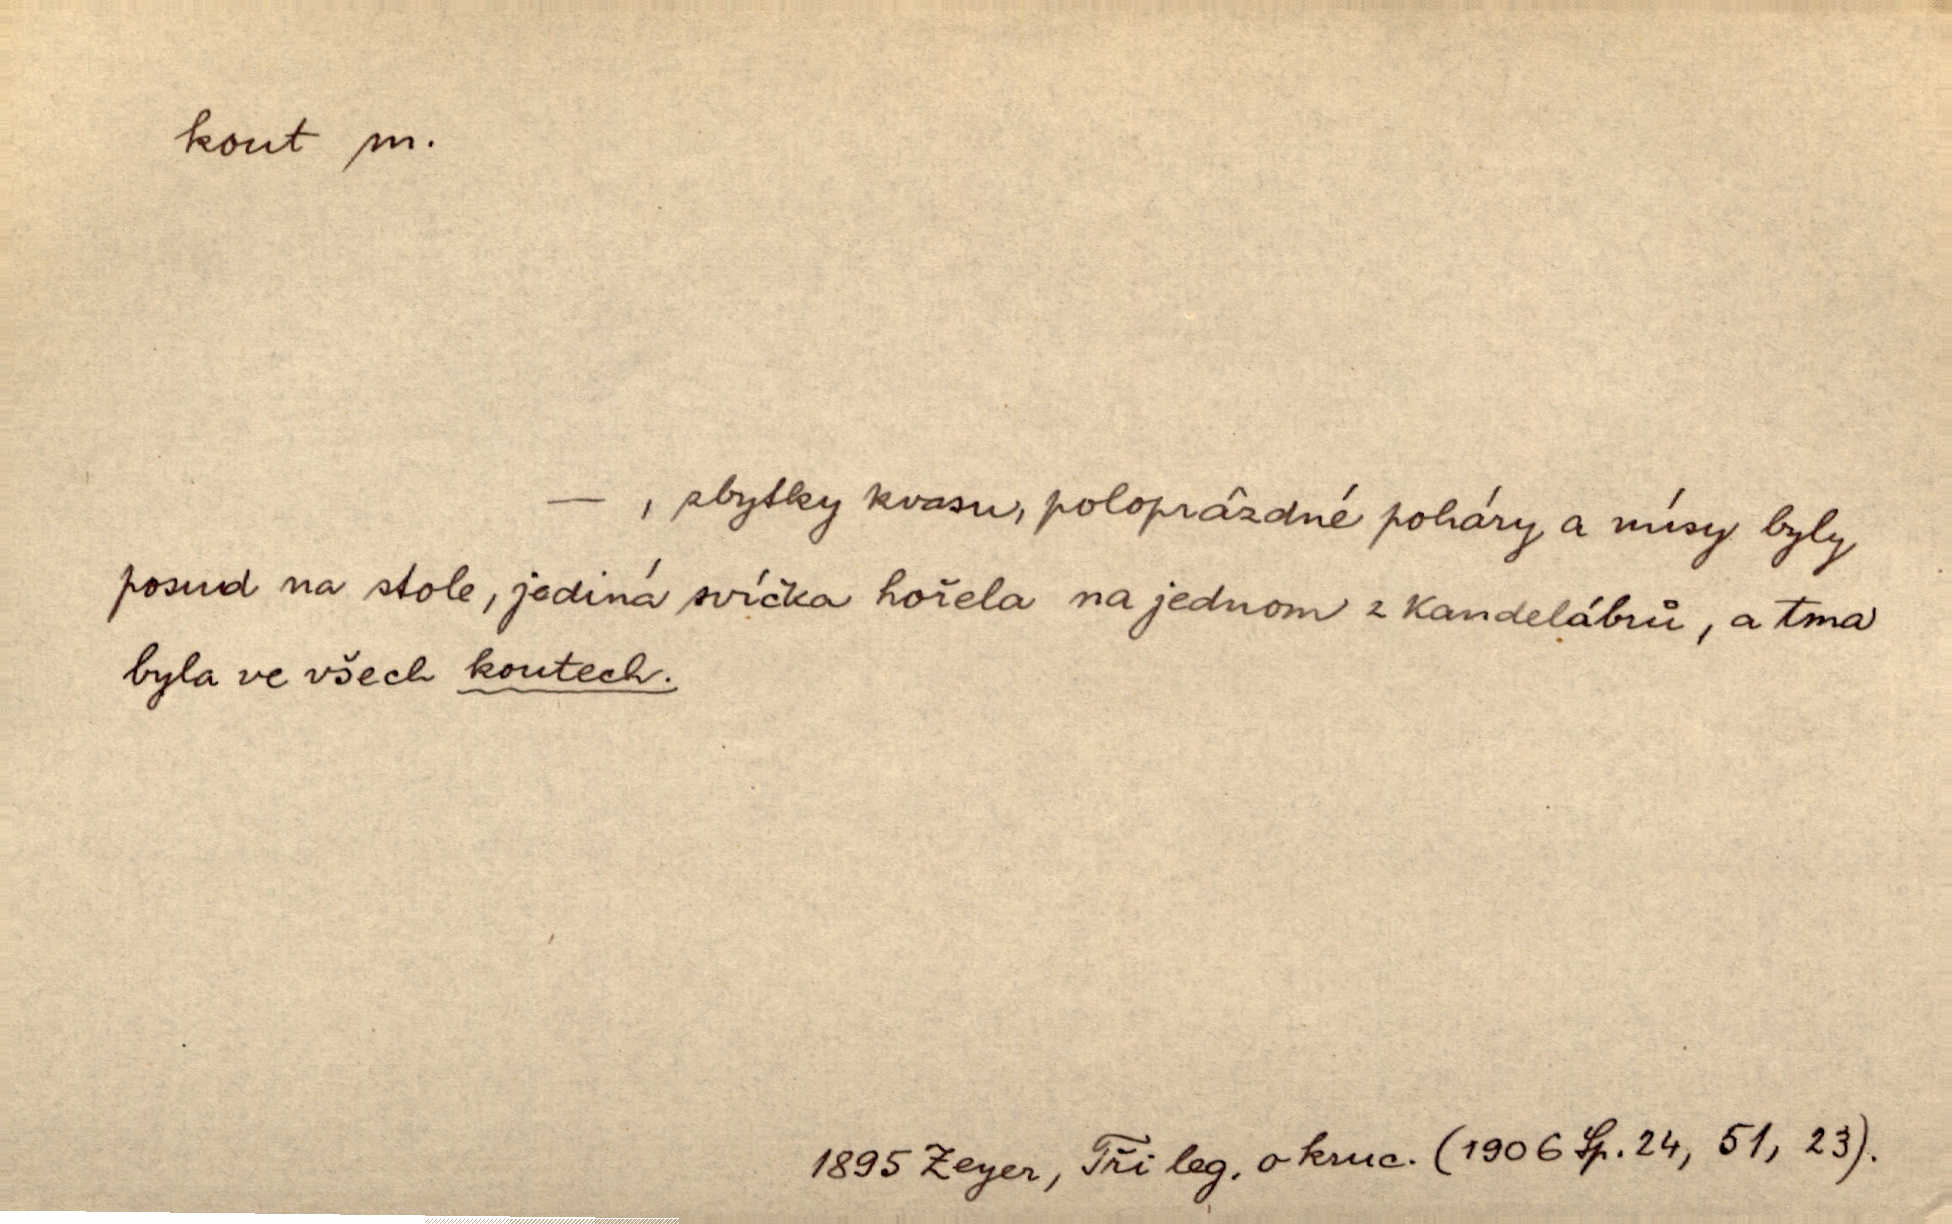 kout m.
— , zbytky kvasu, poloprázdné poháry a mísy byly
posud na stole, jediná svíčka hořela na jednom z kandelábrů, a tma
byla ve všech koutech.
1895 Zeyer, Tři leg. o kruc. (1906 Sp. 24, 51, 23).